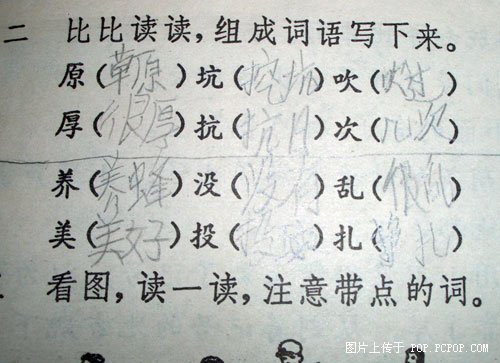 二 比比读读，组成词语写下来。
原（草原）坑（挖坑）吹（吹过）
厚（很厚）抗（抗日）次（几次）
养（养蜂）没（没有）乱（很乱）
美（美好）投（）扎（扎）
看图，读一读，注意带点的词。
图片上传于 POP.PCPOP.COM